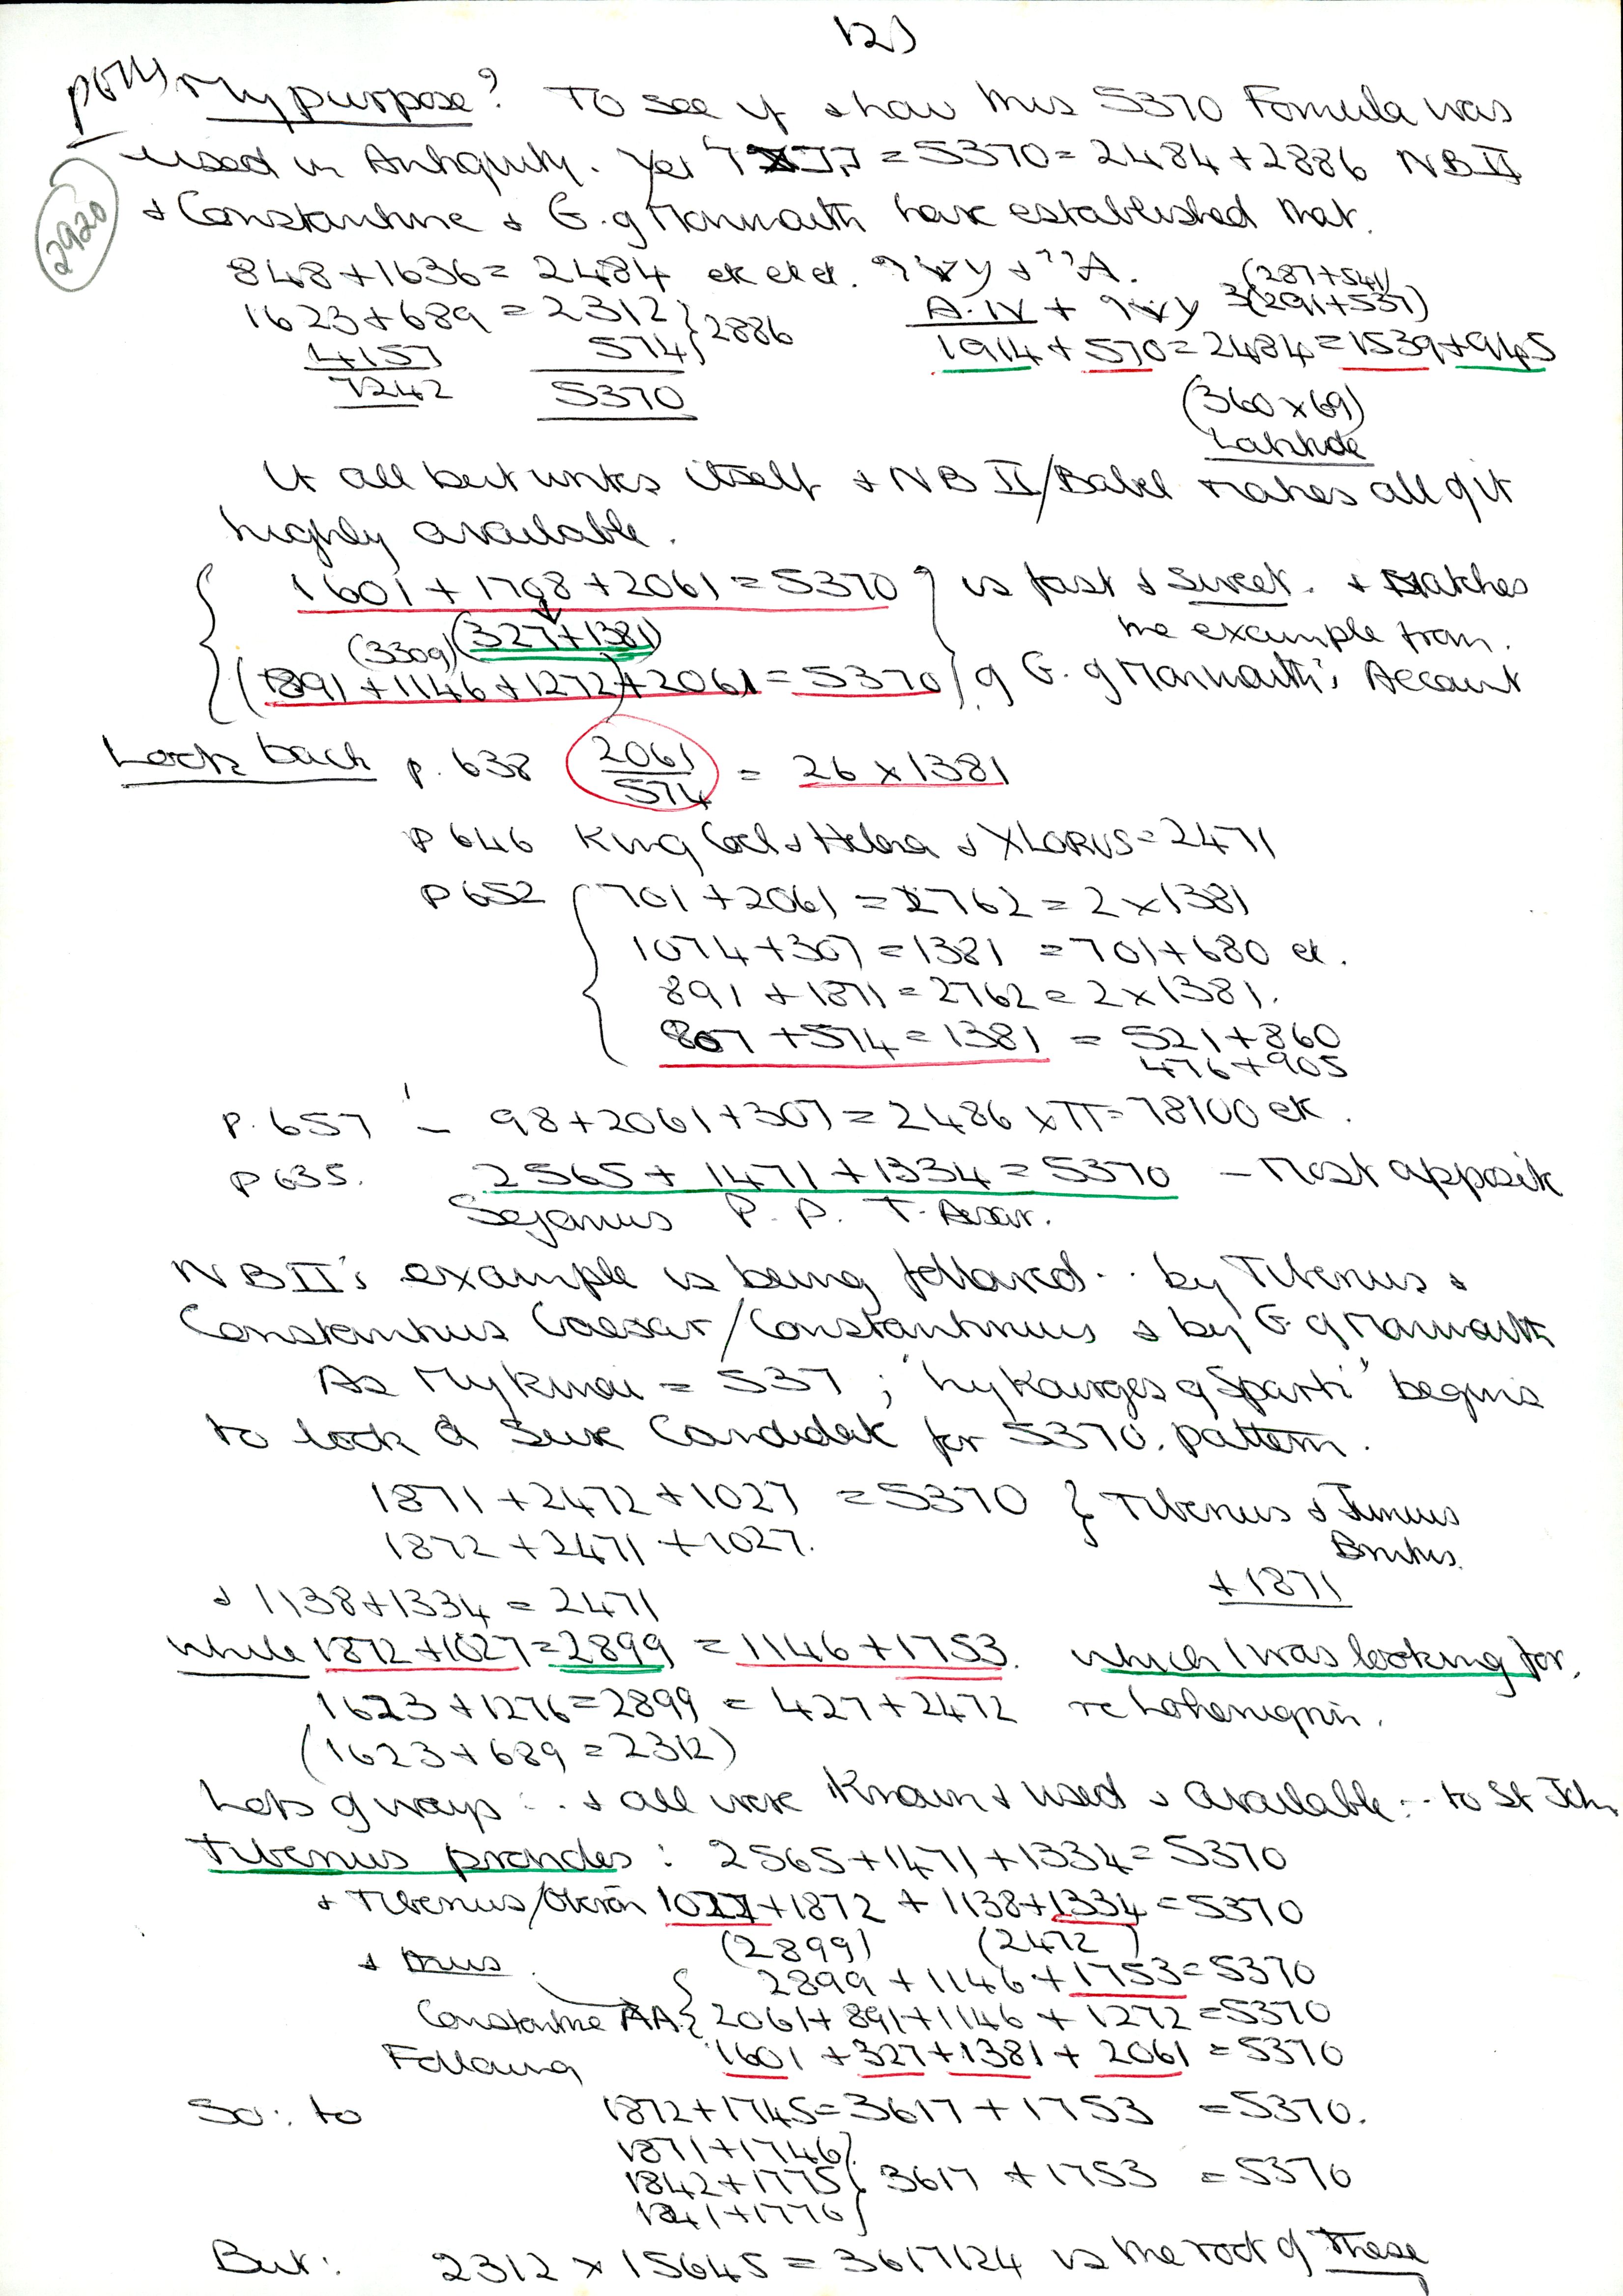 12)
My purpose? To see if & how this 5370 Formula was
used in Antiquity. Yet = 5370 = 2484 + 2886 NB II
2920
& Constantine & G. of Monmouth have established that.
848 + 1636 = 2484 etc etc et. & A.
(287+541)
1623 + 689 = 2312 } 2886
A. IV + 3(291+537)
4157 574
1914 + 570 = 2484 = 1539 + 945
7242 5370
(360 x 69)
Latitude
It all but writes itself & NB II/Babel makes all of it
highly available.
1601 + 1708 + 2061 = 5370 } is fast & sweet. & matches
(3309) (327 + 1381) the example from.
(891 + 1146 + 1272) + 2061 = 5370 } of G. of Monmouth's Account
Look back p. 638 2061/574 = 26 x 1381
P 646 King Coel & Helena & XLORUS = 2471
P 652 { 701 + 2061 = 2762 = 2 x 1381
1074 + 307 = 1381 = 701 + 680 et.
891 + 1871 = 2762 = 2 x 1381.
807 + 574 = 1381 = 521 + 860
476 + 905
P. 657 - 98 + 2061 + 307 = 2486 x π = 78100 etc.
P 635. 2565 + 1471 + 1334 = 5370 - Most apposite
Sejanus P. P. T.
NB II's example is being followed .. by Tiberius &
Constantius Caesar/Constantinus & by G of Monmouth
As Mykinai = 537 ; 'Lykourges of Sparti' begins
to look a sure Candidate for 5370. pattern.
1871 + 2472 + 1027 = 5370 } Tiberius & Junius
1872 + 2471 + 1027. Brutus.
+ 1871
& 1138 + 1334 = 2471
while 1872 + 1027 = 2899 = 1146 + 1753. which I was looking for,
1623 + 1276 = 2899 = 427 + 2472 re Lohengrin.
(1623 + 689 = 2312)
Lots of ways ... & all were known & used & available ... to St John
Tiberius provides : 2565 + 1471 + 1334 = 5370
& Tiberius/Oberon 1027 + 1872 + 1138 + 1334 = 5370
(2899) (2472)
& 2899 + 1146 + 1753 = 5370
Constantine AA { 2061 + 891 + 1146 + 1272 = 5370
Following 1601 + 327 + 1381 + 2061 = 5370
So: to 1872 + 1745 = 3617 + 1753 = 5370.
1871 + 1746 }
1842 + 1775 } 3617 + 1753 = 5370
1841 + 1776 }
But: 2312 x 15645 = 3617124 is the root of these